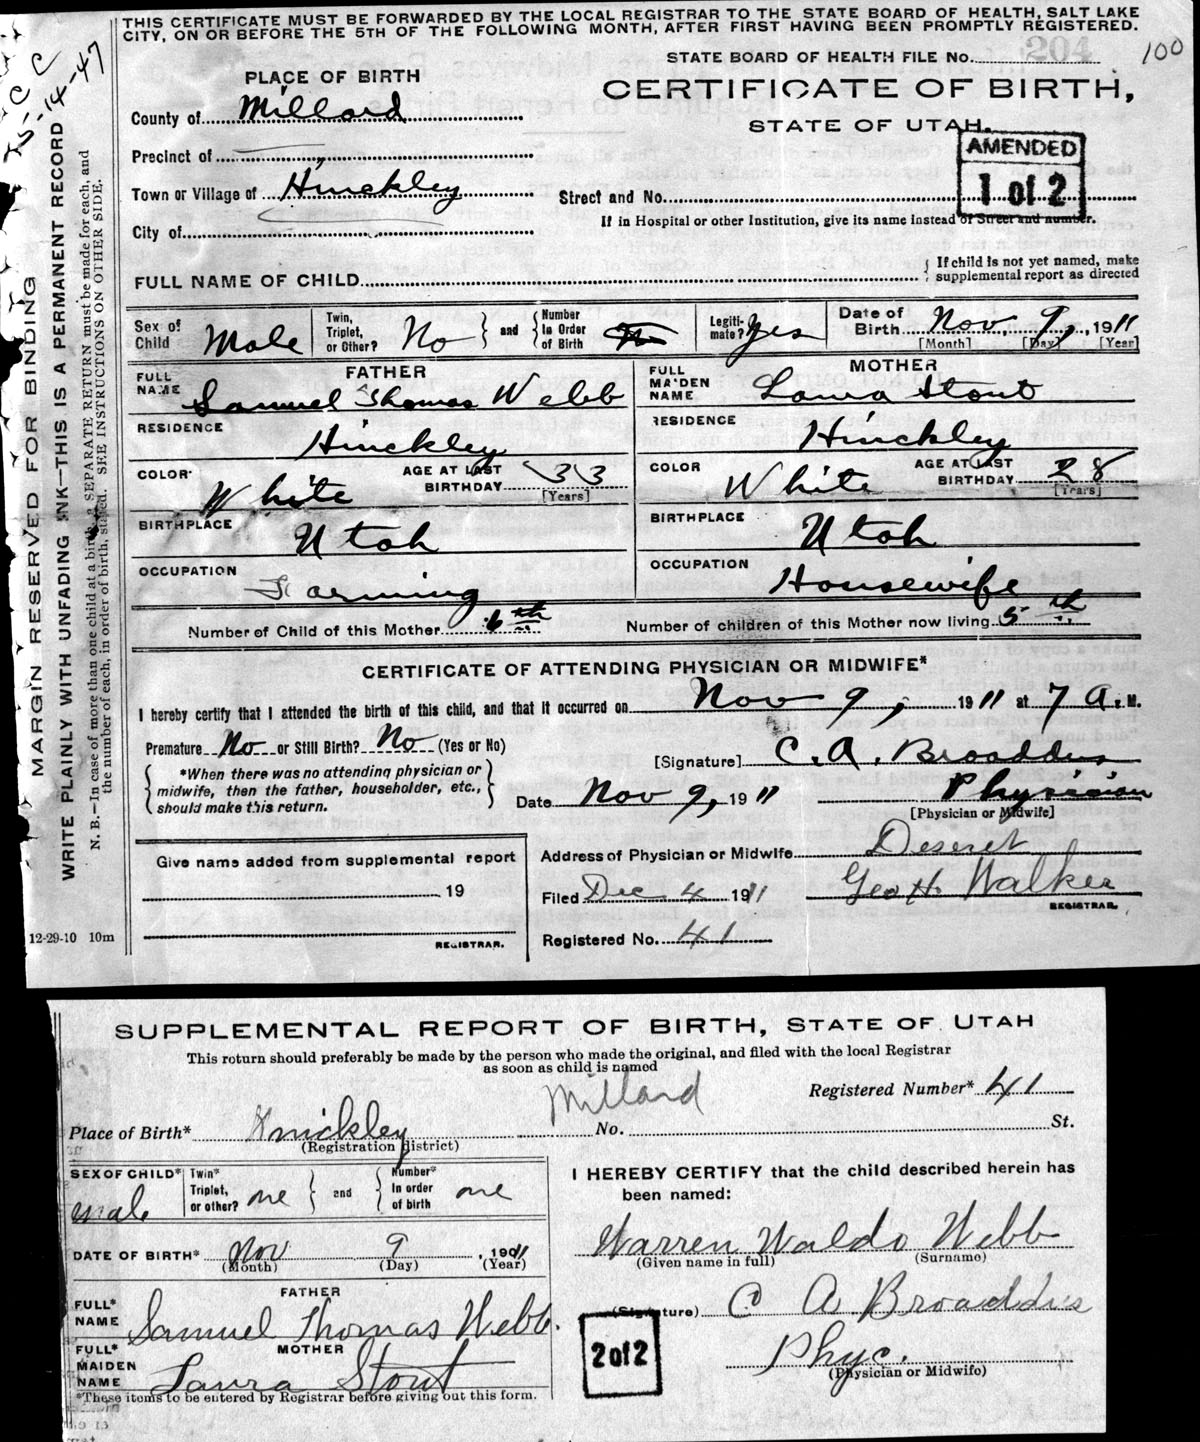 THIS CERTIFICATE MUST BE FORWARDED BY THE LOCAL REGISTRAR TO THE STATE BOARD OF HEALTH, SALT LAKE
CITY, ON OR BEFORE THE 5TH OF THE FOLLOWING MONTH, AFTER FIRST HAVING BEEN PROMPTLY REGISTERED.
STATE BOARD OF HEALTH FILE No. 204
100
PLACE OF BIRTH
CERTIFICATE OF BIRTH,
STATE OF UTAH.
County of Millard
Precinct of
AMENDED
1 of 2
Town or Village of Hinckley
Street and No.
If in Hospital or other Institution, give its name instead of Street and number.
City of
FULL NAME OF CHILD
If child is not yet named, make
supplemental report as directed
Sex of Child Male
Twin, Triplet, or Other? No
and
Number In Order of Birth
Legiti-mate? Yes
Date of Birth Nov. 9, 1911
[Month] [Day] [Year]
FATHER
FULL NAME Samuel Thomas Webb
RESIDENCE Hinckley
COLOR White
AGE AT LAST BIRTHDAY 33
[Years]
BIRTHPLACE Utah
OCCUPATION Farming
MOTHER
FULL MAIDEN NAME Laura Stout
RESIDENCE Hinckley
COLOR White
AGE AT LAST BIRTHDAY 28
[Years]
BIRTHPLACE Utah
OCCUPATION Housewife
Number of Child of this Mother 6th
Number of children of this Mother now living 5th
CERTIFICATE OF ATTENDING PHYSICIAN OR MIDWIFE*
I hereby certify that I attended the birth of this child, and that it occurred on Nov 9, 1911 at 7 A. M.
Premature No or Still Birth? No (Yes or No)
*When there was no attending physician or
midwife, then the father, householder, etc.,
should make this return.
[Signature] C. A. Broaddus
Date Nov 9, 1911
Physician
[Physician or Midwife]
Give name added from supplemental report
19
REGISTRAR.
Address of Physician or Midwife Deseret
Filed Dec 4 1911
Geo H. Walker
REGISTRAR.
Registered No. 41
12-29-10 10m
MARGIN RESERVED FOR BINDING
WRITE PLAINLY WITH UNFADING INK—THIS IS A PERMANENT RECORD
N. B.—In case of more than one child at a birth, a SEPARATE RETURN must be made for each, and
the number of each, in order of birth, stated. SEE INSTRUCTIONS ON OTHER SIDE.
SUPPLEMENTAL REPORT OF BIRTH, STATE OF UTAH
This return should preferably be made by the person who made the original, and filed with the local Registrar
as soon as child is named
Millard
Registered Number* 41
Place of Birth* Hinckley No. St.
(Registration district)
SEX OF CHILD* male
Twin* Triplet, or other? one
and
Number* In order of birth one
DATE OF BIRTH* Nov 9, 1911
(Month) (Day) (Year)
FATHER
FULL* NAME Samuel Thomas Webb.
MOTHER
FULL* MAIDEN NAME Laura Stout
*These items to be entered by Registrar before giving out this form.
I HEREBY CERTIFY that the child described herein has
been named:
Warren Waldo Webb
(Given name in full) (Surname)
(Signature) C A Broaddus
2 of 2
Phyc.
(Physician or Midwife)